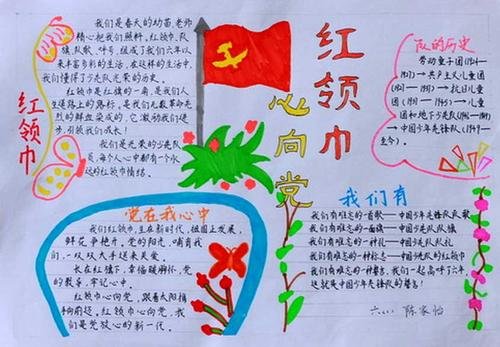 红领巾
我们是春天的幼苗,老师
精心把我们照料,红领巾、队
旗、队歌、呼号,组成了我们六年以
来丰富多彩的生活,在这样的生活中
我们懂得了少先队光荣的历史。
红领巾是红旗的一角,是我们人
生道路上的路标,是我们无数革命先
烈的鲜血染成的,它激励我们进
步,引领我们成长!
我们是光荣的少先队
员,每个人心中都有一个永
远的红领巾情结。
红领巾
心向党
队的历史
劳动童子团(1924—
1927)→共产主义儿童团
→抗日儿童
团→儿童
团和地下少先队
→中国少年先锋队(1949—
至今)。
党在我心中
我们红领巾,生在新时代,祖国在发展,
鲜花争艳开。党的阳光,哺育我
们,一双双大手送来关爱。
长在红旗下,幸福暖胸怀,党
的教导,牢记心中。
红领巾心向党,跟着太阳旗
向前进。红领巾心向党,我
们是党放心的新一代。
我们有
我们有难忘的首歌——中国少年先锋队队歌
我们有难忘的一面旗——中国少先队队旗
我们有难忘的一种礼——中国少先队队礼
我们有难忘的一种标志——中国少先队的红领巾
我们有难忘的一种誓言,我们一起高呼了六年,
这就是中国少年先锋队的誓言!
陈家怡